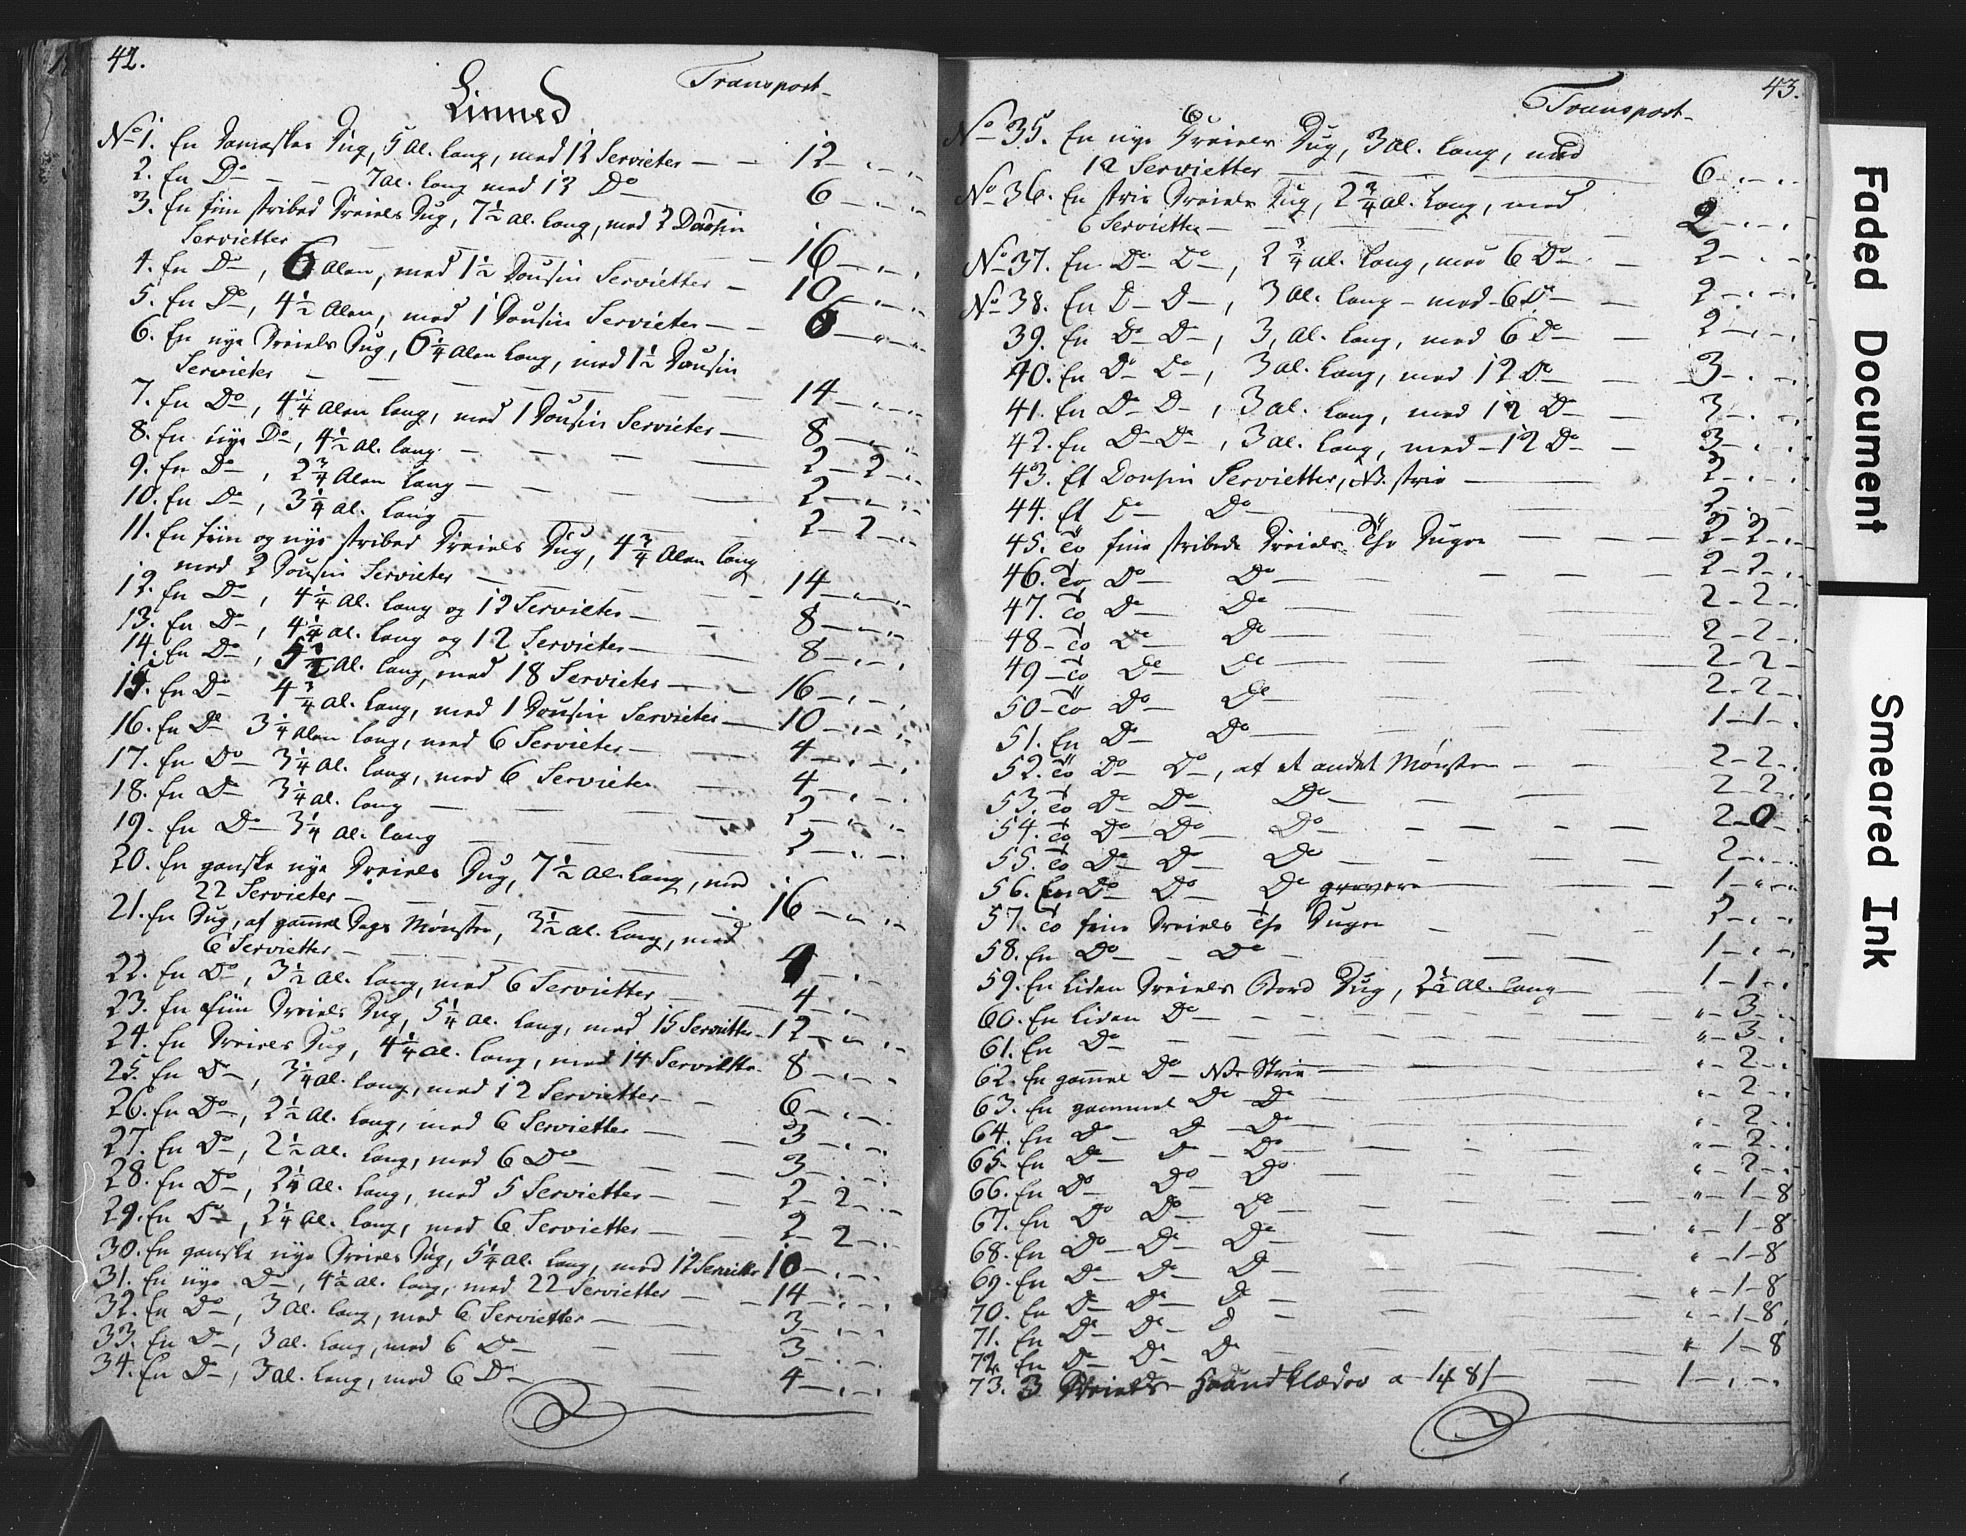 42.
Transport
Linned
No 1. En Damaskes Dug, 5 Al. lang, med 12 Servieter — — 12 — „ — „
2. En Do — — 7 al. lang med 12 Do — 6 — „ — „
3. En fiin stribed Dreiels Dug, 7 1/2 al. lang, med 2 Dousin
Servietter — 16 — „ — „
4. En Do, 6 Alen, med 1 1/2 Dousin Servietter — 10 — „ — „
5. En Do, 4 1/2 Alen, med 1 Dousin Servieter — 6 — „ — „
6. En nye Dreiels Dug, 6 1/4 Alen lang, med 1 1/2 Dousin
Servieter — 14 — „ — „
7. En Do, 4 1/4 Alen lang, med 1 Dousin Servieter — 8 — „ — „
8. En nye Do, 4 1/2 al. lang — 2 — 2 — „
9. En Do, 2 3/4 Alen lang — 2 — „ — „
10. En Do, 3 1/4 al. lang — 2 — 2 — „
11. En fiin og nye stribed Dreiels Dug, 4 3/4 Alen lang
med 2 Dousin Servieter — 14 — „ — „
12. En Do, 4 1/4 al. lang og 12 Servieter — 8 — „ — „
13. En Do, 4 1/4 al. lang og 12 Servieter — 8 — „ — „
14. En Do, al. lang, med 18 Servieter — 16 — „ — „
15. En Do 4 3/4 al. lang, med 1 Dousin Servieter — 10 — „ — „
16. En Do 3 1/4 Alen lang, med 6 Servieter — 4 — „ — „
17. En Do 3 1/4 al. lang, med 6 Servieter — 4 — „ — „
18. En Do 3 1/4 al. lang — 2 — „ — „
19. En Do 3 1/4 al. lang — 2 — „ — „
20. En ganske nye Dreiels Dug, 7 1/2 al. lang, med
22 Servieter — 16 — „ — „
21. En Dug, af gammel Dags Mønster, 3 1/2 al. lang, med
6 Servietter — 4 — „ — „
22. En Do, 3 1/2 al. lang, med 6 Servietter — 4 — „ — „
23. En fiin Dreiels Dug, 5 1/4 al. lang, med 15 Servietter — 12 — „ — „
24. En Dreiels Dug, 4 1/4 al. lang, med 14 Servietter — 8 — „ — „
25. En Do, 3 1/4 al. lang, med 12 Servietter — 6 — „ — „
26. En Do, 2 1/2 al. lang, med 6 Servietter — 3 — „ — „
27. En Do, 2 1/2 al. lang, med 6 Do — 3 — „ — „
28. En Do, 2 1/4 al. lang, med 5 Servietter — 2 — 2 — „
29. En Do, 2 1/4 al. lang, med 6 Servietter — 2 — 2 — „
30. En ganske nye Dreiels Dug, 5 1/4 al. lang, med 12 Servietter 10 — „ — „
31. En nye Do, 4 1/2 al. lang, med 22 Servietter — 14 — „ — „
32. En Do, 3 al. lang, med 6 Servietter — 3 — „ — „
33. En Do, 3 al. lang, med 6 Do — 3 — „ — „
34. En Do, 3 al. lang, med 6 Do — 4 — „ — „
43.
Transport
No 35. En nye Dreiels Dug, 3 al. lang, med
12 Servietter — 6 — „ — „
No 36. En striv Dreiels Dug, 2 3/4 al. lang, med
6 Servietter — 2 — „ — „
No 37. En Do Do, 2 3/4 al. lang, med 6 Do — 2 — „ — „
No 38. En Do Do, 3 al. lang — med 6 Do — 2 — „ — „
39. En Do Do, 3, al. lang, med 6 Do — 2 — „ — „
40. En Do Do, 3 al. lang, med 12 Do — 3 — „ — „
41. En Do Do, 3 al. lang, med 12 Do — 3 — „ — „
42. En Do Do, 3 al. lang, med 12 Do — 3 — „ — „
43. Et Dousin Servietter, NB. striv — 2 — „ — „
44. Et Do Do — 2 — „ — „
45. To fine stribede Dreiels The Duger — 2 — 2 — „
46. To Do Do — 2 — 2 — „
47. To Do Do — 2 — 2 — „
48 — To Do Do — 2 — 2 — „
49 — To Do Do — 2 — 2 —
50 — To Do Do — 2 — 2 — „
51. En Do Do — 1 — 1 — „
52. To Do Do, af et andet Mønster — 2 — 2 — „
53. To Do Do Do — 2 — 2 — „
54. To Do Do Do — 2 — 0 — „
55. To Do Do Do — 2 — „ — „
56. En Do Do Do grovere — 1 — „ — „
57. To fine Dreiels The Duger — 2 — „ — „
58. En Do — Do — 1 — „ — „
59. En Liden Dreiels Bord Dug, 2 1/2 al. lang — 1 — 1 — „
60. En Liden Do — „ — 3 — „
61. En Do — „ — 3 — „
62. En gammel Do NB. Striv — „ — 2 — „
63. En gammel Do Do — „ — 2 — „
64. En Do Do Do — „ — 2 — „
65. En Do Do Do — „ — 2 — „
66. En Do Do Do — „ — 2 — „
67. En Do Do Do — „ — 1 — 8
68. En Do Do Do — „ — 1 — 8
69. En Do Do Do — „ — 1 — 8
70. En Do Do Do — „ — 1 — 8
71. En Do Do Do — „ — 1 — 8
72. En Do Do Do — „ 1 — 8
73. 3 Dreiels Haandklæder a 1 — 1 — „ — „
Faded Document
Smeared Ink